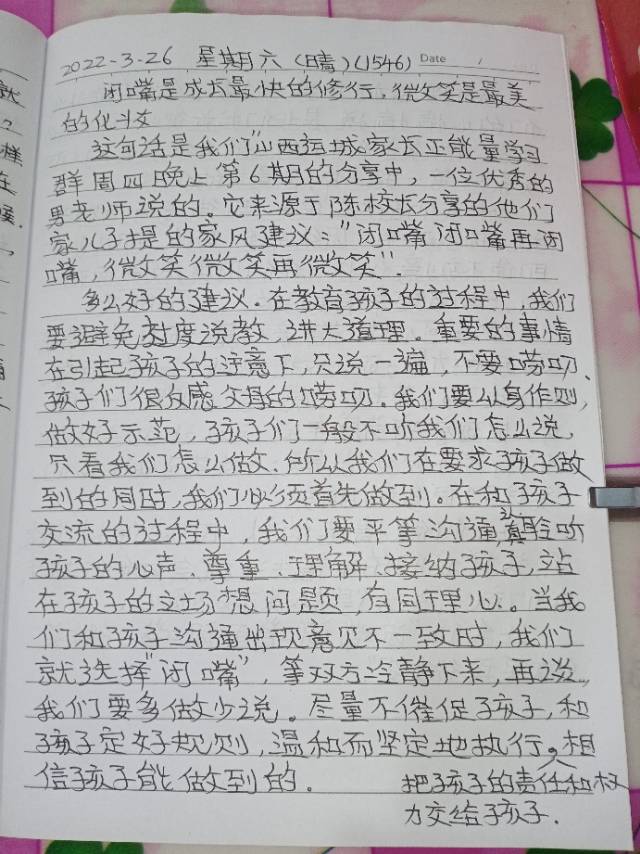 2022-3-26 星期六（晴）(1546) Date
闭嘴是成长最快的修行，微笑是最美
的化妆
这句话是我们"山西运城家长正能量学习
群周四晚上第6期的分享中，一位优秀的
男老师说的。它来源于陈校长分享的他们
家儿子提的家风建议："闭嘴闭嘴再闭
嘴，微笑微笑再微笑"．
多么好的建议．在教育孩子的过程中，我们
要避免过度说教，讲大道理。重要的事情
在引起孩子的注意下，只说一遍，不要唠叨．
孩子们很反感父母的唠叨．我们要以身作则，
做好示范，孩子们一般不听我们怎么说，
只看我们怎么做．所以我们在要求孩子做
到的同时，我们必须首先做到。在和孩子
交流的过程中，我们要平等沟通，认真聆听
孩子的心声．尊重、理解、接纳孩子，站
在孩子的立场想问题，有同理心。当我
们和孩子沟通出现意见不一致时，我们
就选择"闭嘴"，等双方冷静下来，再谈，
我们要多做少说。尽量不催促孩子，和
孩子定好规则，温和而坚定地执行。相
信孩子能做到的．
把孩子的责任和权
力交给孩子．
就
？
样
在